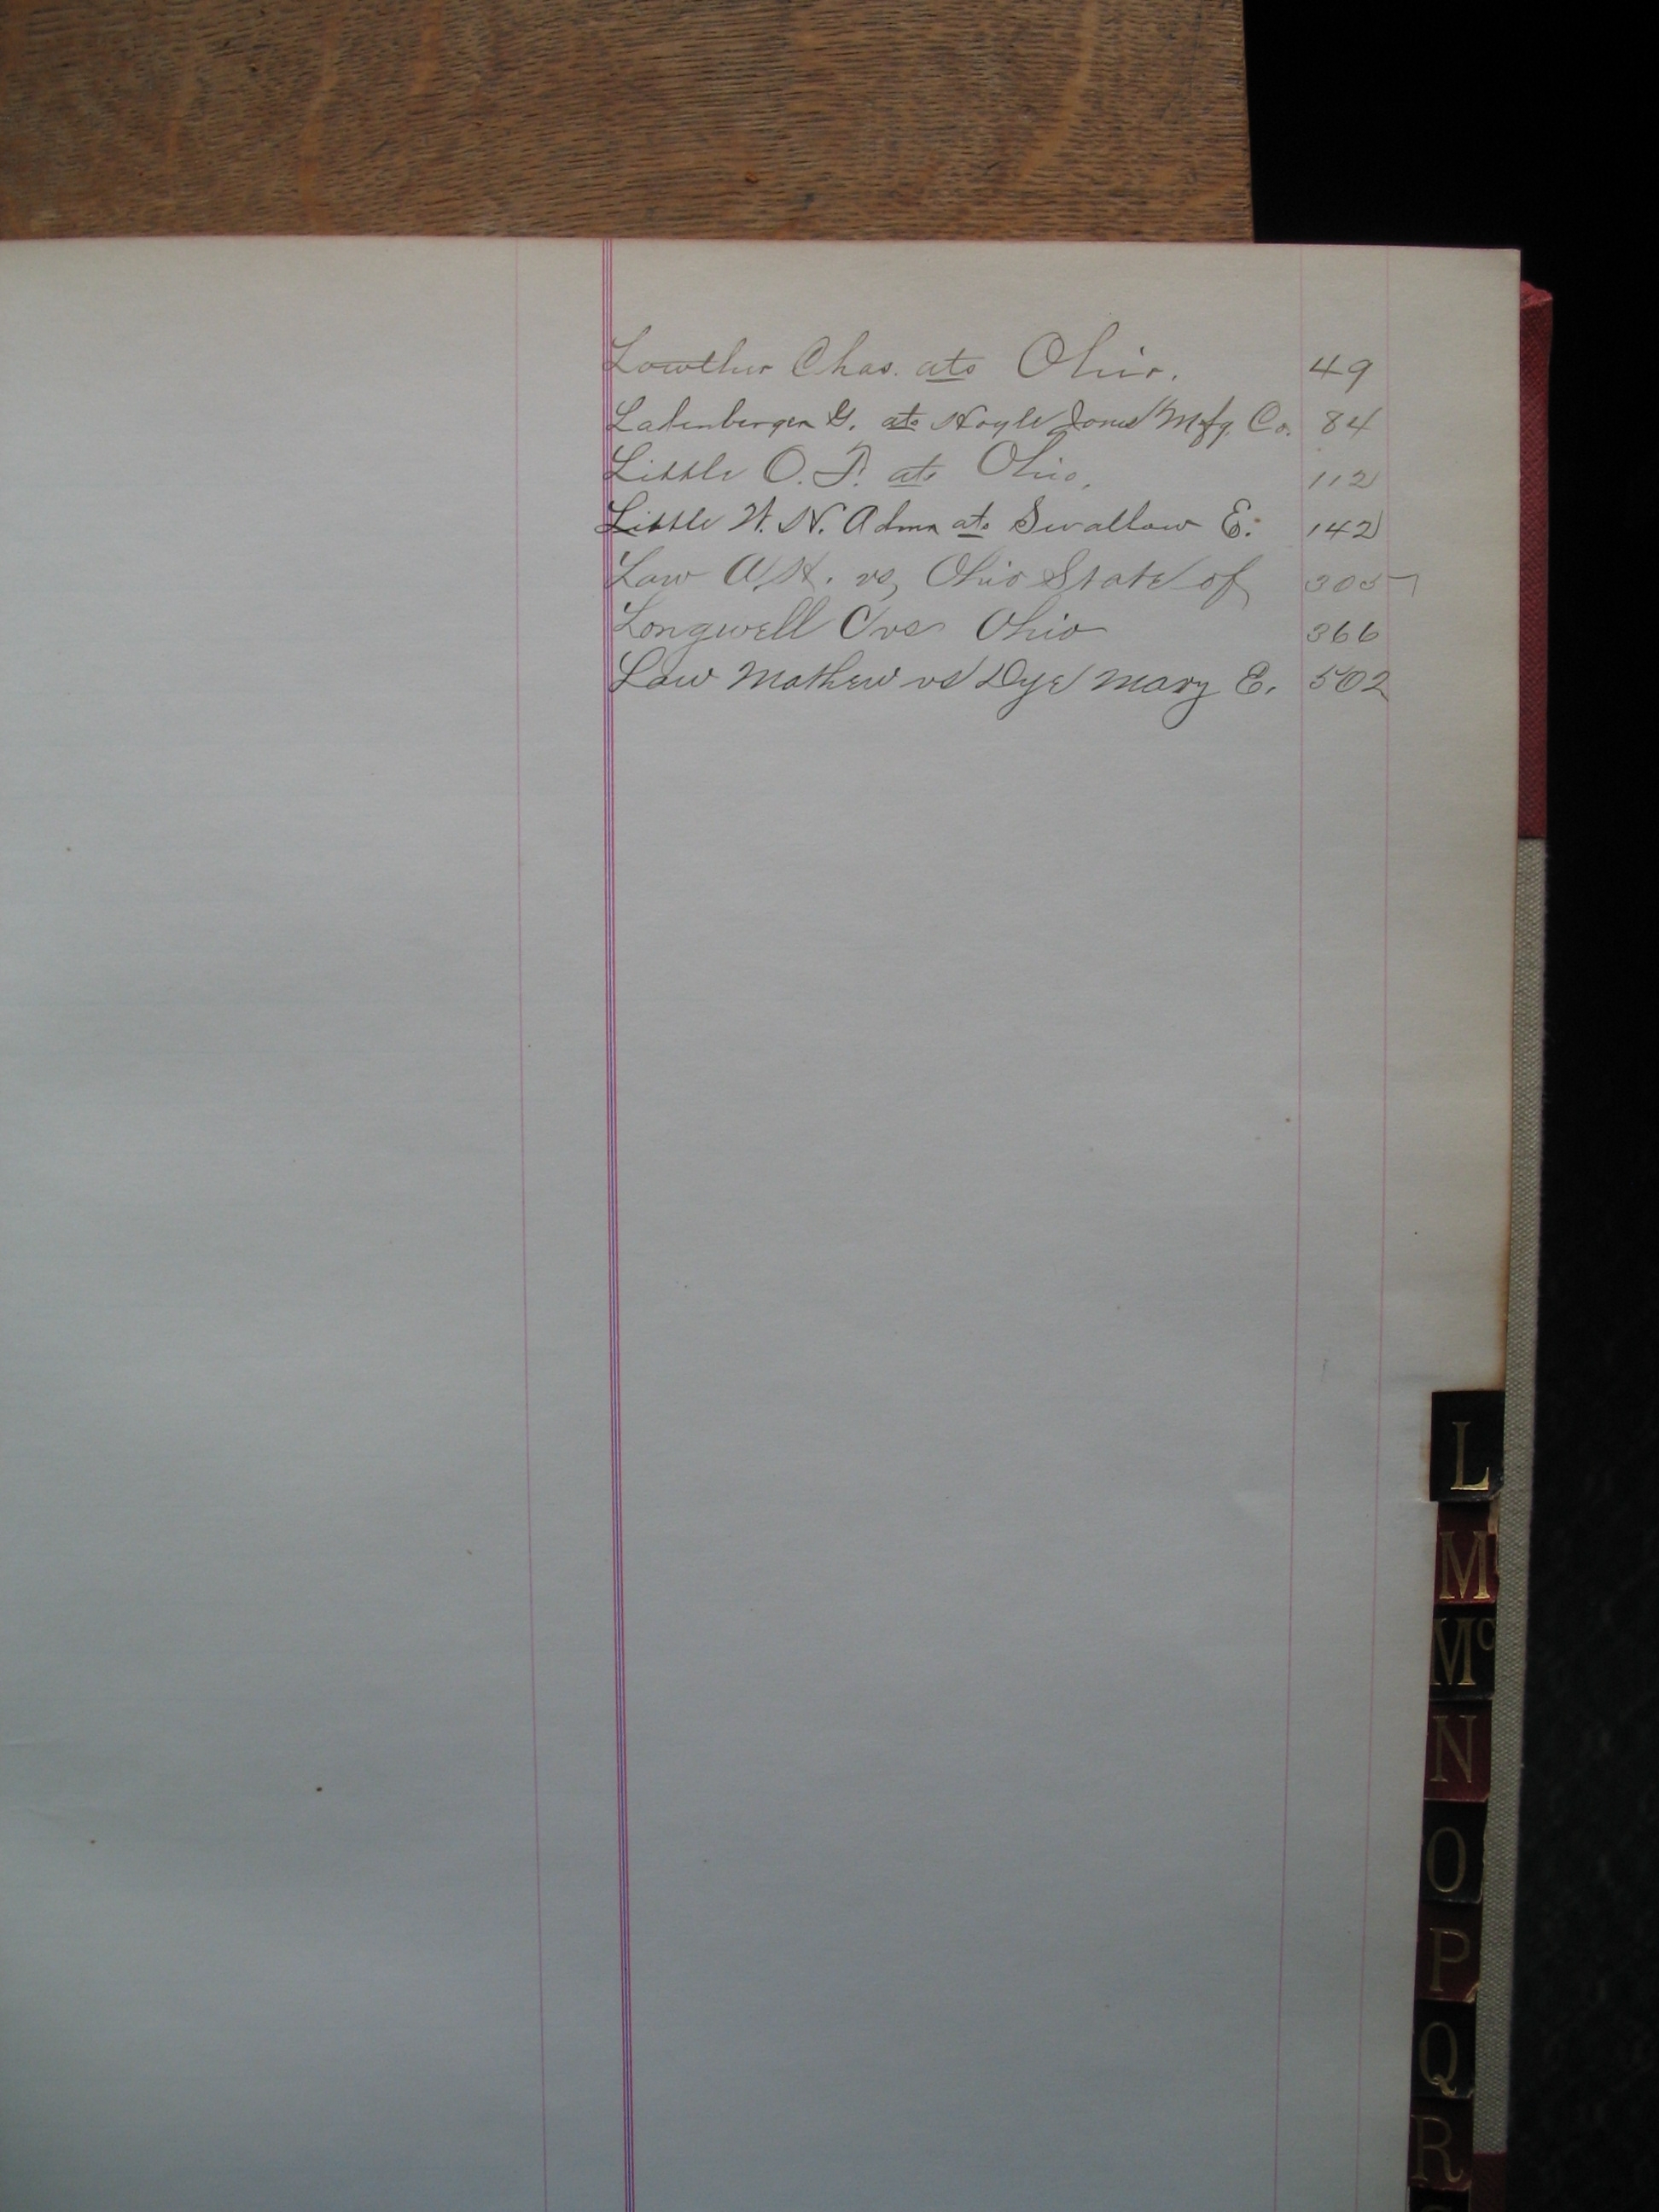 Lowther Chas. ats Ohio. 49
G. ats Hoyle Jones Mfg. Co. 84
Little O. P. ats Ohio. 112
Little W. N. Admr ats Swallow E. 142
Law A. H. vs, Ohio State of 305
Longwell C vs Ohio 366
Law Mathew vs Dye Mary E. 502
L
M
Mc
N
O
P
Q
R